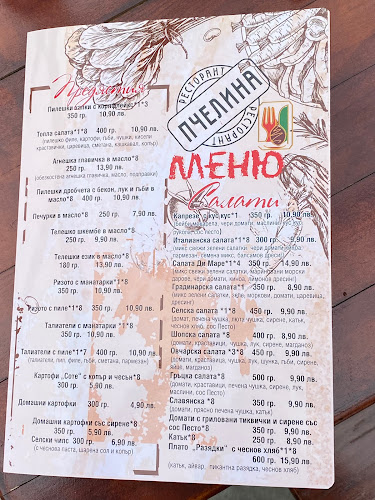 Предястия
Пилешки хапки с корнфлейкс*1*3
350 гр. 10,90 лв.
Топла салата*1*8 400 гр. 10,90 лв.
(пилешко филе, картофи, гъби, чушки, кисели
краставички, царевица, сметана, кашкавал, копър)
Агнешка главичка в масло*8
250 гр. 13,90 лв.
(обезкостена агнешка главичка, масло, подправки)
Пилешки дробчета с бекон, лук и гъби в
масло*8 400 гр. 10,90 лв.
Печурки в масло*8 250 гр. 7,90 лв.
Телешко шкембе в масло*8
250 гр. 9,90 лв.
Телешки език в масло*8
180 гр. 13,90 лв.
Ризото с манатарки*1*8
350 гр. 10,90 лв.
Ризото с пиле*1*8 350 гр. 9,90 лв.
Талиатели с манатарки *1*8
350 гр. 10,90 лв.
Талиатели с пиле*1*7 400 гр. 10,90 лв.
(талиатели, пил. филе, гъби, сметана, пармезан)
Картофи „Соте" с копър и чесън*8
300 гр. 5,90 лв.
Домашни картофки 300 гр. 4,90 лв.
Домашни картофки със сирене*8
350 гр. 5,90 лв.
Селски чипс 300 гр. 6,90 лв.
(с чеснова паста, шарена сол и копър)
РЕСТОРАНТ
ПЧЕЛИНА
РЕСТОРАНТ
МЕНЮ
Салати
Капрезе с кус кус*1 350 гр. 10,90 лв.
рукола, сос Песто)
Италианска салата*1*8 300 гр. 9,90 лв.
(микс свежи зелени салатки, чери домати,
пармезан, семена микс, балсамов дресинг)
Салата Ди Маре*1*4 350 гр. 14,90 лв.
(микс свежи зелени салатки, мариновани морски
дарове, чери домати, киноа, лимонов дресинг)
Градинарска салата*1 350 гр. 8,90 лв.
(микс зелени салатки, моркови, домати, царевица,
дресинг)
Селска салата*1*8 450 гр. 9,90 лв.
(домат, печена чушка, люта чушка, сирене, катък,
чеснов хляб, сос Песто)
Шопска салата *8 400 гр. 8,90 лв.
(домати, краставици, чушка, лук, сирене, магданоз)
Овчарска салата *3*8 450 гр. 9,90 лв.
(домати, краставици, чушка, лук, шунка, гъби, сирене,
яйце, магданоз)
Гръцка салата*8 500 гр. 9,90 лв.
(домати, краставици, печена чушка, сирене, лук,
маслини, сос Песто)
Славянска *8 350 гр. 8,90 лв.
(домати, прясно печена чушка, катък)
Домати с гриловани тиквички и сирене със
сос Песто*8 350 гр. 9,90 лв.
Катък*8 250 гр. 8,90 лв.
Плато „Разядки" с чеснов хляб*1*8
600 гр. 15,90 лв.
(катък, айвар, пикантна разядка, чеснов хляб)